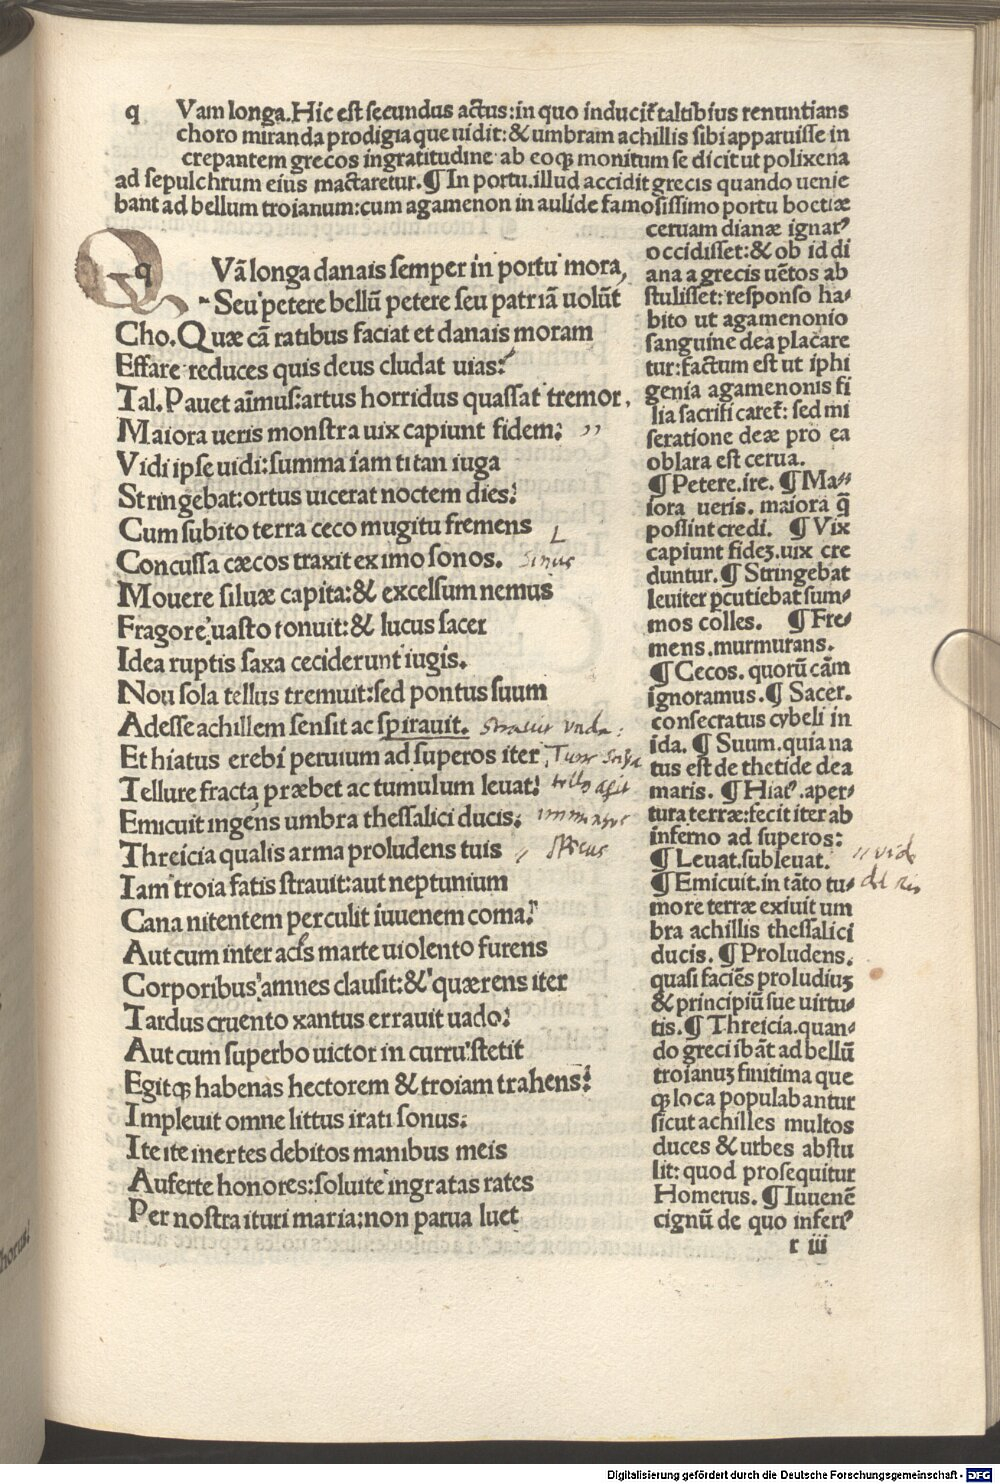 q Vam longa. Hic est secundus actus: in quo inducit̃ taltibius renuntians
choro miranda prodigia que uidit: & umbram achillis sibi apparuisse in
crepantem grecos ingratitudine ab eoqꝫ monitum se dicit ut polixena
ad sepulchrum eius mactaretur. ¶ In portu. illud accidit grecis quando uenie
bant ad bellum troianum: cum agamenon in aulide famosissimo portu boctiæ
Qq Vā longa danais semper in portu mora,
Seu petere bellū petere seu patriā uolūt
Cho. Quæ cā ratibus faciat et danais moram
Effare reduces quis deus cludat uias:
Tal. Pauet aīmus: artus horridus quassat tremor.
Maiora ueris monstra uix capiunt fidem: ,,
Vidi ipse uidi: summa iam titan iuga
Stringebat: ortus uicerat noctem dies:
Cum subito terra ceco mugitu fremens
Concussa cæcos traxit ex imo sonos. sinus
Mouere siluæ capita: & excelsum nemus
Fragore uasto tonuit: & lucus sacer
Idea ruptis saxa ceciderunt iugis.
Nou sola tellus tremuit: sed pontus suum
Adesse achillem sensit ac spirauit. strauit unda:
Et hiatus erebi peruium ad superos iter Tunc scissa
Tellure fracta præbet ac tumulum leuat:
Emicuit ingens umbra thessalici ducis:
Threicia qualis arma proludens tuis
Iam troia fatis strauit: aut neptunium
Cana nitentem perculit iuuenem coma:
Aut cum inter acies marte uiolento furens
Corporibus amnes clausit: & quærens iter
Tardus cruento xantus errauit uado:
Aut cum superbo uictor in curru stetit
Egitqꝫ habenas hectorem & troiam trahens:
Impleuit omne littus irati sonus:
Ite ite inertes debitos manibus meis
Auferte honores: soluite ingratas rates
Per nostra ituri maria: non parua luet
ceruam dianæ ignarꝰ
occidisset: & ob id di
ana a grecis uētos ab
stulisset: responso ha-
bito ut agamenonio
sanguine dea placare
tur: factum est ut iphi
genia agamenonis fi
lia sacrificaret̃: sed mi
seratione deæ pro ea
oblara est cerua.
¶ Petere. ire. ¶ Ma-
iora ueris. maiora q̄
possint credi. ¶ Vix
capiunt fideꝫ. uix cre
duntur. ¶ Stringebat
leuiter pcutiebat sum-
mos colles. ¶ Fre-
mens. murmurans.
¶ Cecos. quorū cām
ignoramus. ¶ Sacer.
consecratus cybeli in
ida. ¶ Suum. quia na
tus est de thetide dea
maris. ¶ Hiatꝰ. aper-
tura terræ: fecit iter ab
inferno ad superos:
¶ Leuat. subleuat.
¶ Emicuit. in tāto tu-
more terræ exiuit um
bra achillis thessalici
ducis. ¶ Proludens.
quasi faciēs proludiuꝫ
& principiū sue uirtu-
tis. ¶ Threicia. quan-
do greci ibāt ad bellū
troianuꝫ finitima que
qꝫ loca populabantur
sicut achilles multos
duces & urbes abstu
lit: quod prosequitur
Homerus. ¶ Iuuenē
cignū de quo inferiꝰ
r iii
Digitalisierung gefördert durch die Deutsche Forschungsgemeinschaft - DFG